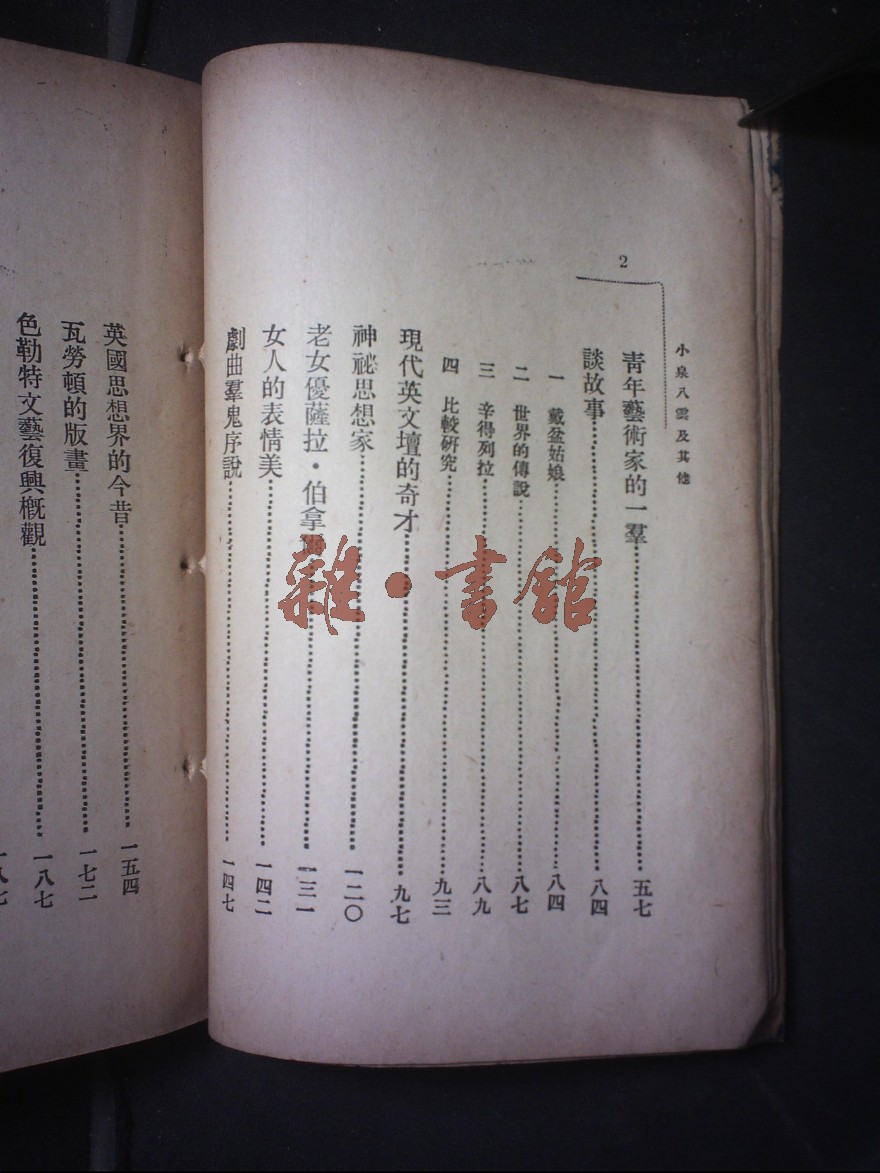 2
小泉八雲及其他
青年藝術家的一羣 五七
談故事 八四
一 戴盆姑娘 八四
二 世界的傳說 八七
三 辛得列拉 八九
四 比較研究 九三
現代英文壇的奇才 九七
神祕思想家 一二〇
老女優薩拉·伯拿爾 一三一
女人的表情美 一四二
劇曲羣鬼序說 一四七
英國思想界的今昔 一五四
瓦勞頓的版畫 一七二
色勒特文藝復興概觀 一八七
雜·書館